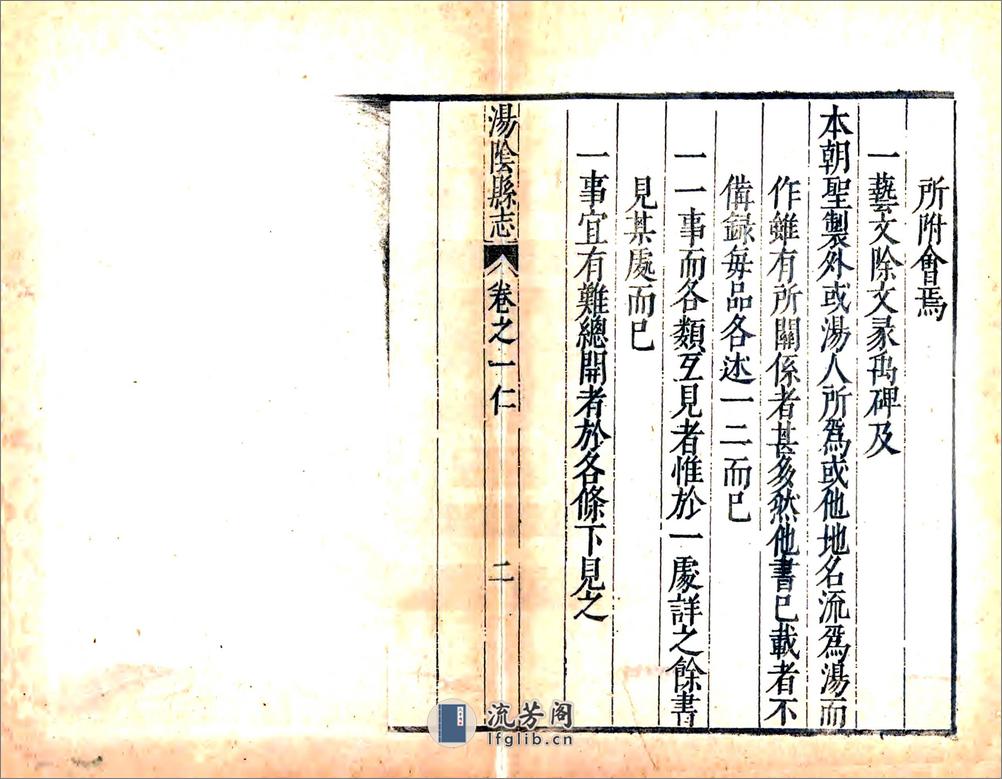 所附會焉
一藝文除文彖禹碑及
本朝聖製外或湯人所爲或他地名流爲湯而
作雖有所關係者甚多然他書已載者不
備録每品各述一二而已
一一事而各類互見者惟於一處詳之餘書
見某處而已
一事宜有難總開者於各條下見之
湯陰縣志 卷之一仁 二
流芳阁
lfglib.cn